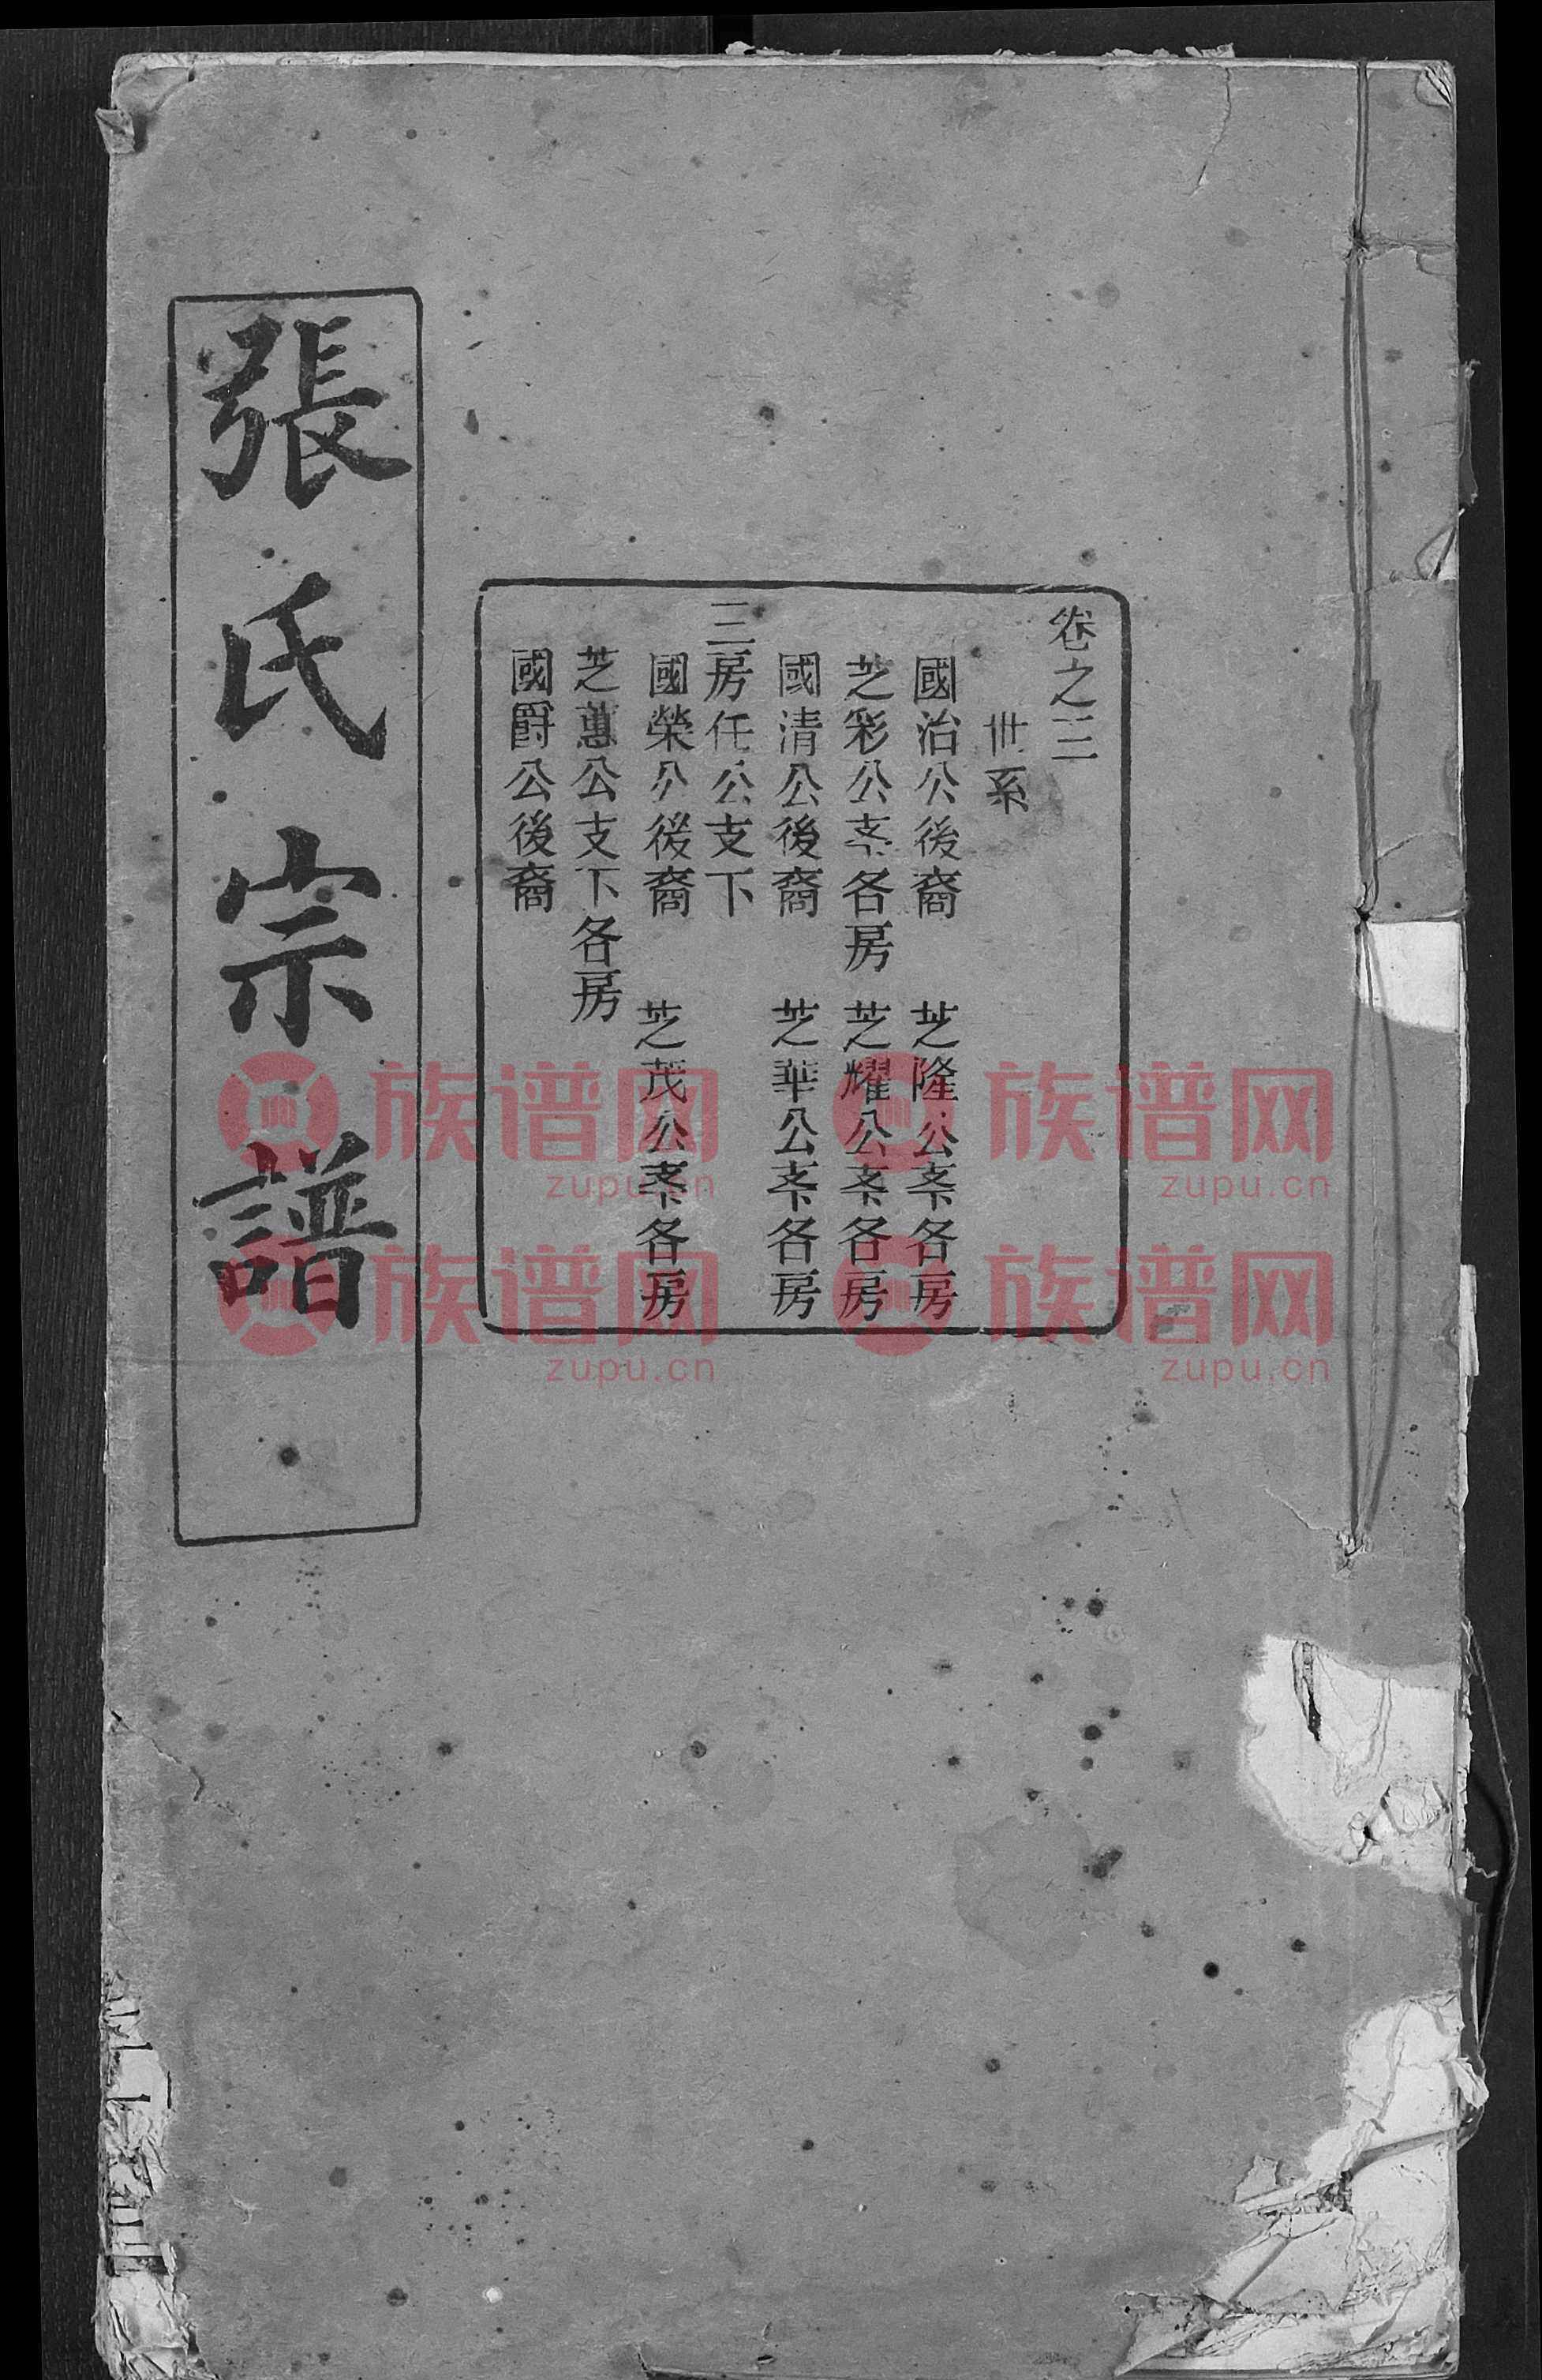 卷之三
世系
國治公後裔 芝隆公支下各房
芝彩公支下各房 芝耀公支下各房
國清公後裔 芝華公支下各房
三房任公支下
國榮公後裔 芝茂公支下各房
芝蕙公支下各房
國爵公後裔
張氏宗譜
族谱网 族谱网
zupu.cn zupu.cn
族谱网 族谱网
zupu.cn zupu.cn